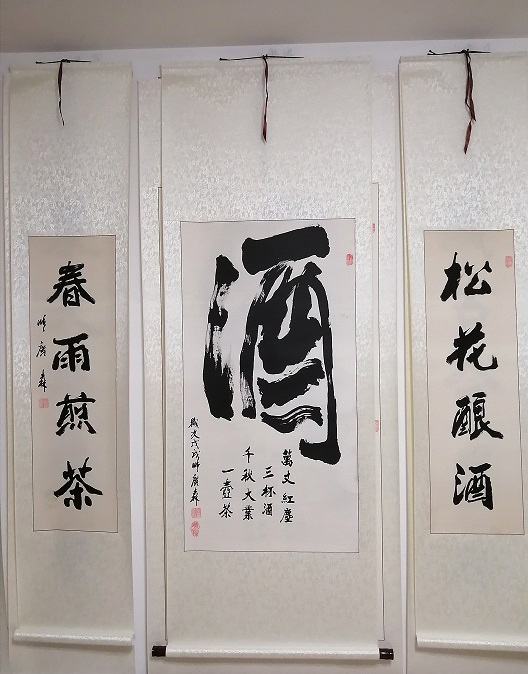 松花酿酒
酒
萬丈紅塵
三杯酒
千秋大業
一壺茶
戊戌師廣森
春雨煎茶
師廣森